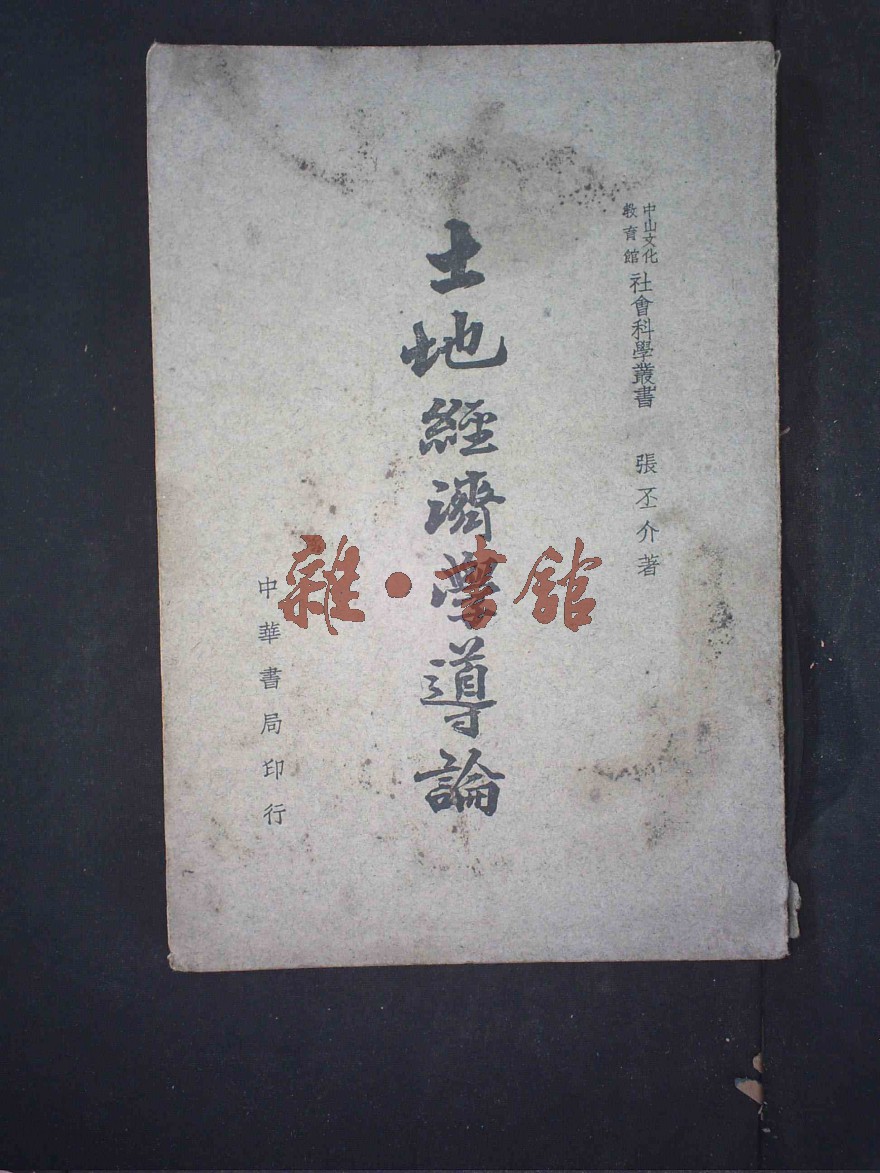 中山文化
教育館
社會科學叢書 張丕介著
土地經濟學導論
中華書局印行
雜·書館